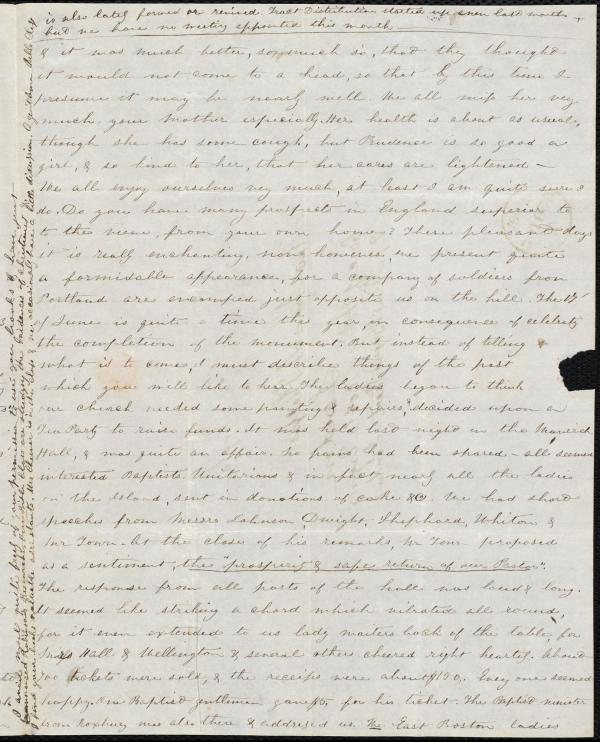 is also lately formed or revived. Tract Distribution started up anew last month,
but we have no meeting appointed this month
& it was much better, so much so, that they thought
it would not come to a head, so that by this time I
presume it may be nearly well. We all miss her very
much, your Mother especially. Her health is about as usual,
though she has some cough, but Prudence is so good a
girl, & so kind to her, that her cares are lightened –
We all enjoy ourselves very much, at least I am quite sure I
do. Do you have many prospects in England superior to
to the view, from your own home? These pleasant days
it is really enchanting, now however, we present quite
a formidable appearance, for a company of soldiers from
Portland are encamped just opposite us on the hill. The 17
of June is quite a time this year, in consequence of celebrating
the completion of the monument. But instead of telling
what is to come, I must discribe things of the past
which you will like to hear. The ladies began to think
our church needed some painting & repairs, decided upon a
Tea Party to raise funds. It was held last night in the Maverick
Hall, & was quite an affair. No pains had been spared – all seemed
interested Baptists, Unitarians & in fact nearly all the ladies
on the Island, sent in donations of cake &c. We had short
speeches from Messrs Johnson, Dwight, Shephard, Whiton &
Mr Town. At the close of his remarks, Mr Town proposed
as a sentiment, the "prosperity & safe return of our Pastor".
The response from all parts of the hall was loud & long.
It seemed like striking a chord which vibrated all round,
for it even extended to us lady waiters back of the table, for
Hall & Wellington & several others cheered right heartily. About
tickets were sold, & the receipts were about $190. Every one seemed
happy. One Baptist gentleman gave $5, for his ticket. The Baptist minister
from Roxbury was also there & addressed us. The East Boston ladies